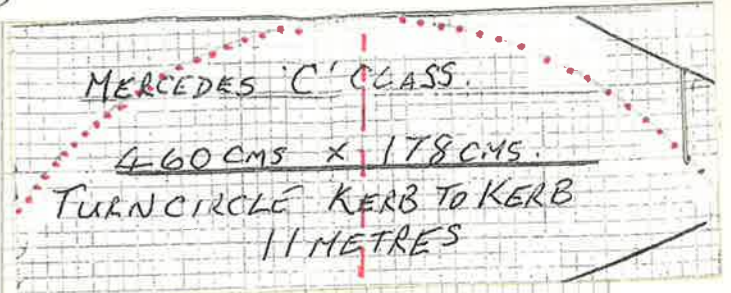 MERCEDES 'C' CLASS.
460 CMS X 178 CMS.
TURN CIRCLE KERB TO KERB
11 METRES